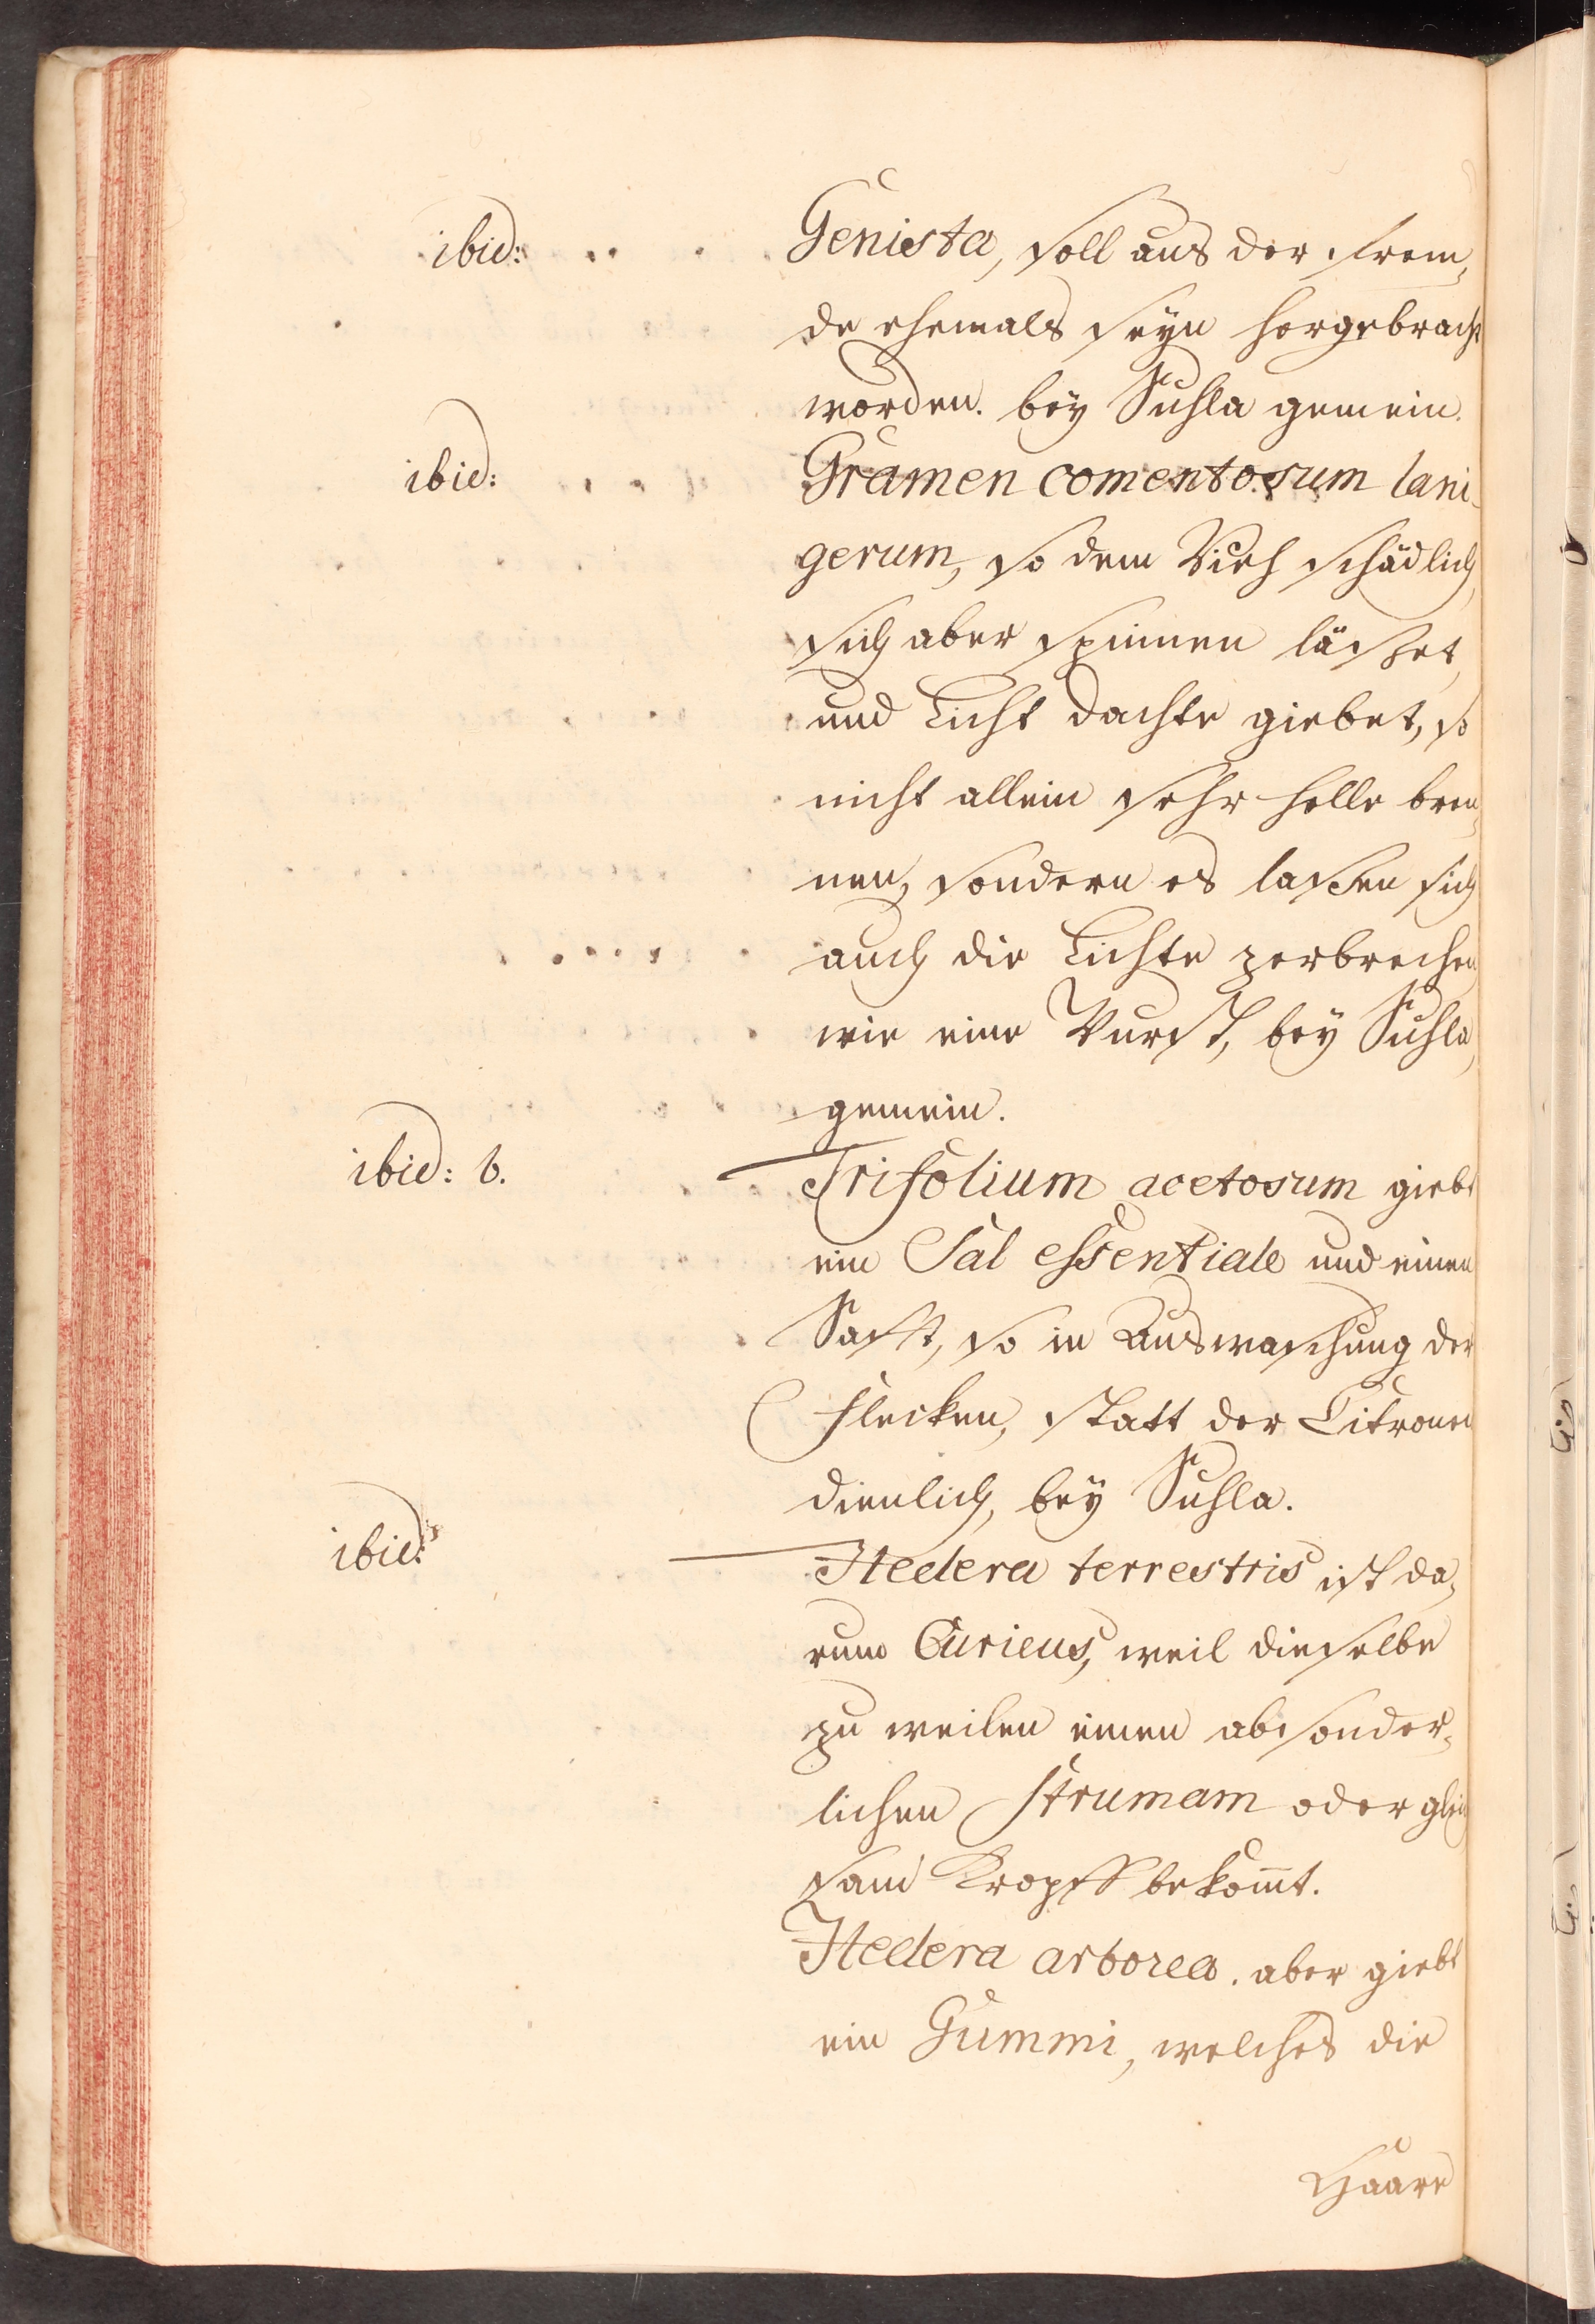 ibid:
Genista, soll aus der Frem,
de ehemals seyn hergebracht
worden. bey Suhla gemein.
ibid:
Gramen comentosum lani-
gerum, so dem Vieh schädlich,
sich aber spinnen läßet,
und Licht dachte giebet, so
nicht allein sehr helle bren,
nen, sondern es laßen sich
auch die Lichte zerbrechen,
wie eine Wurst, bey Suhla,
gemein.
ibid: b.
Trifolium acetosum giebt
ein Sal essentiale und einen
Safft, so in Auswaschung der
Flecken, statt der Citronen
dienlich, bey Suhla.
ibid:
Hedera terrestris ist da,
rum Curieus, weil dieselbe
zu weilen einen absonder,
lichen strumam oder gleich
sam Kropff bekom̅t.
Hedera arborea. aber giebt
ein Gummi, welches die
Haare